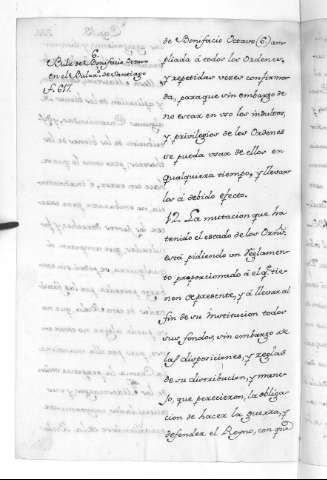 6.
Bula de Bonifacio Octavo
en el Bular.º de Santiago
f. 617.
de Bonifacio Octavo (6) am-
pliada á todos los Ordenes,
y repetidas vezes confirma-
da, para que sin embargo de
no estar en uso los indultos,
y privilegios de los Ordenes
se pueda usar de ellos en
qualquiera tiempo, y llevar
los á debido efecto.
12. La mutacion que ha
tenido el estado de los Orns.
está pidiendo un Reglamen-
to proporcionado á el qe. tie-
nen de presente, y á llevar al
fin de su Institucion todos
sus fondos, sin embargo de
las disposiciones, y reglas
de su distribucion, y mane-
jo, que perecieron, la obliga-
cion de hacer la guerra, y
defender el Reyno, con que